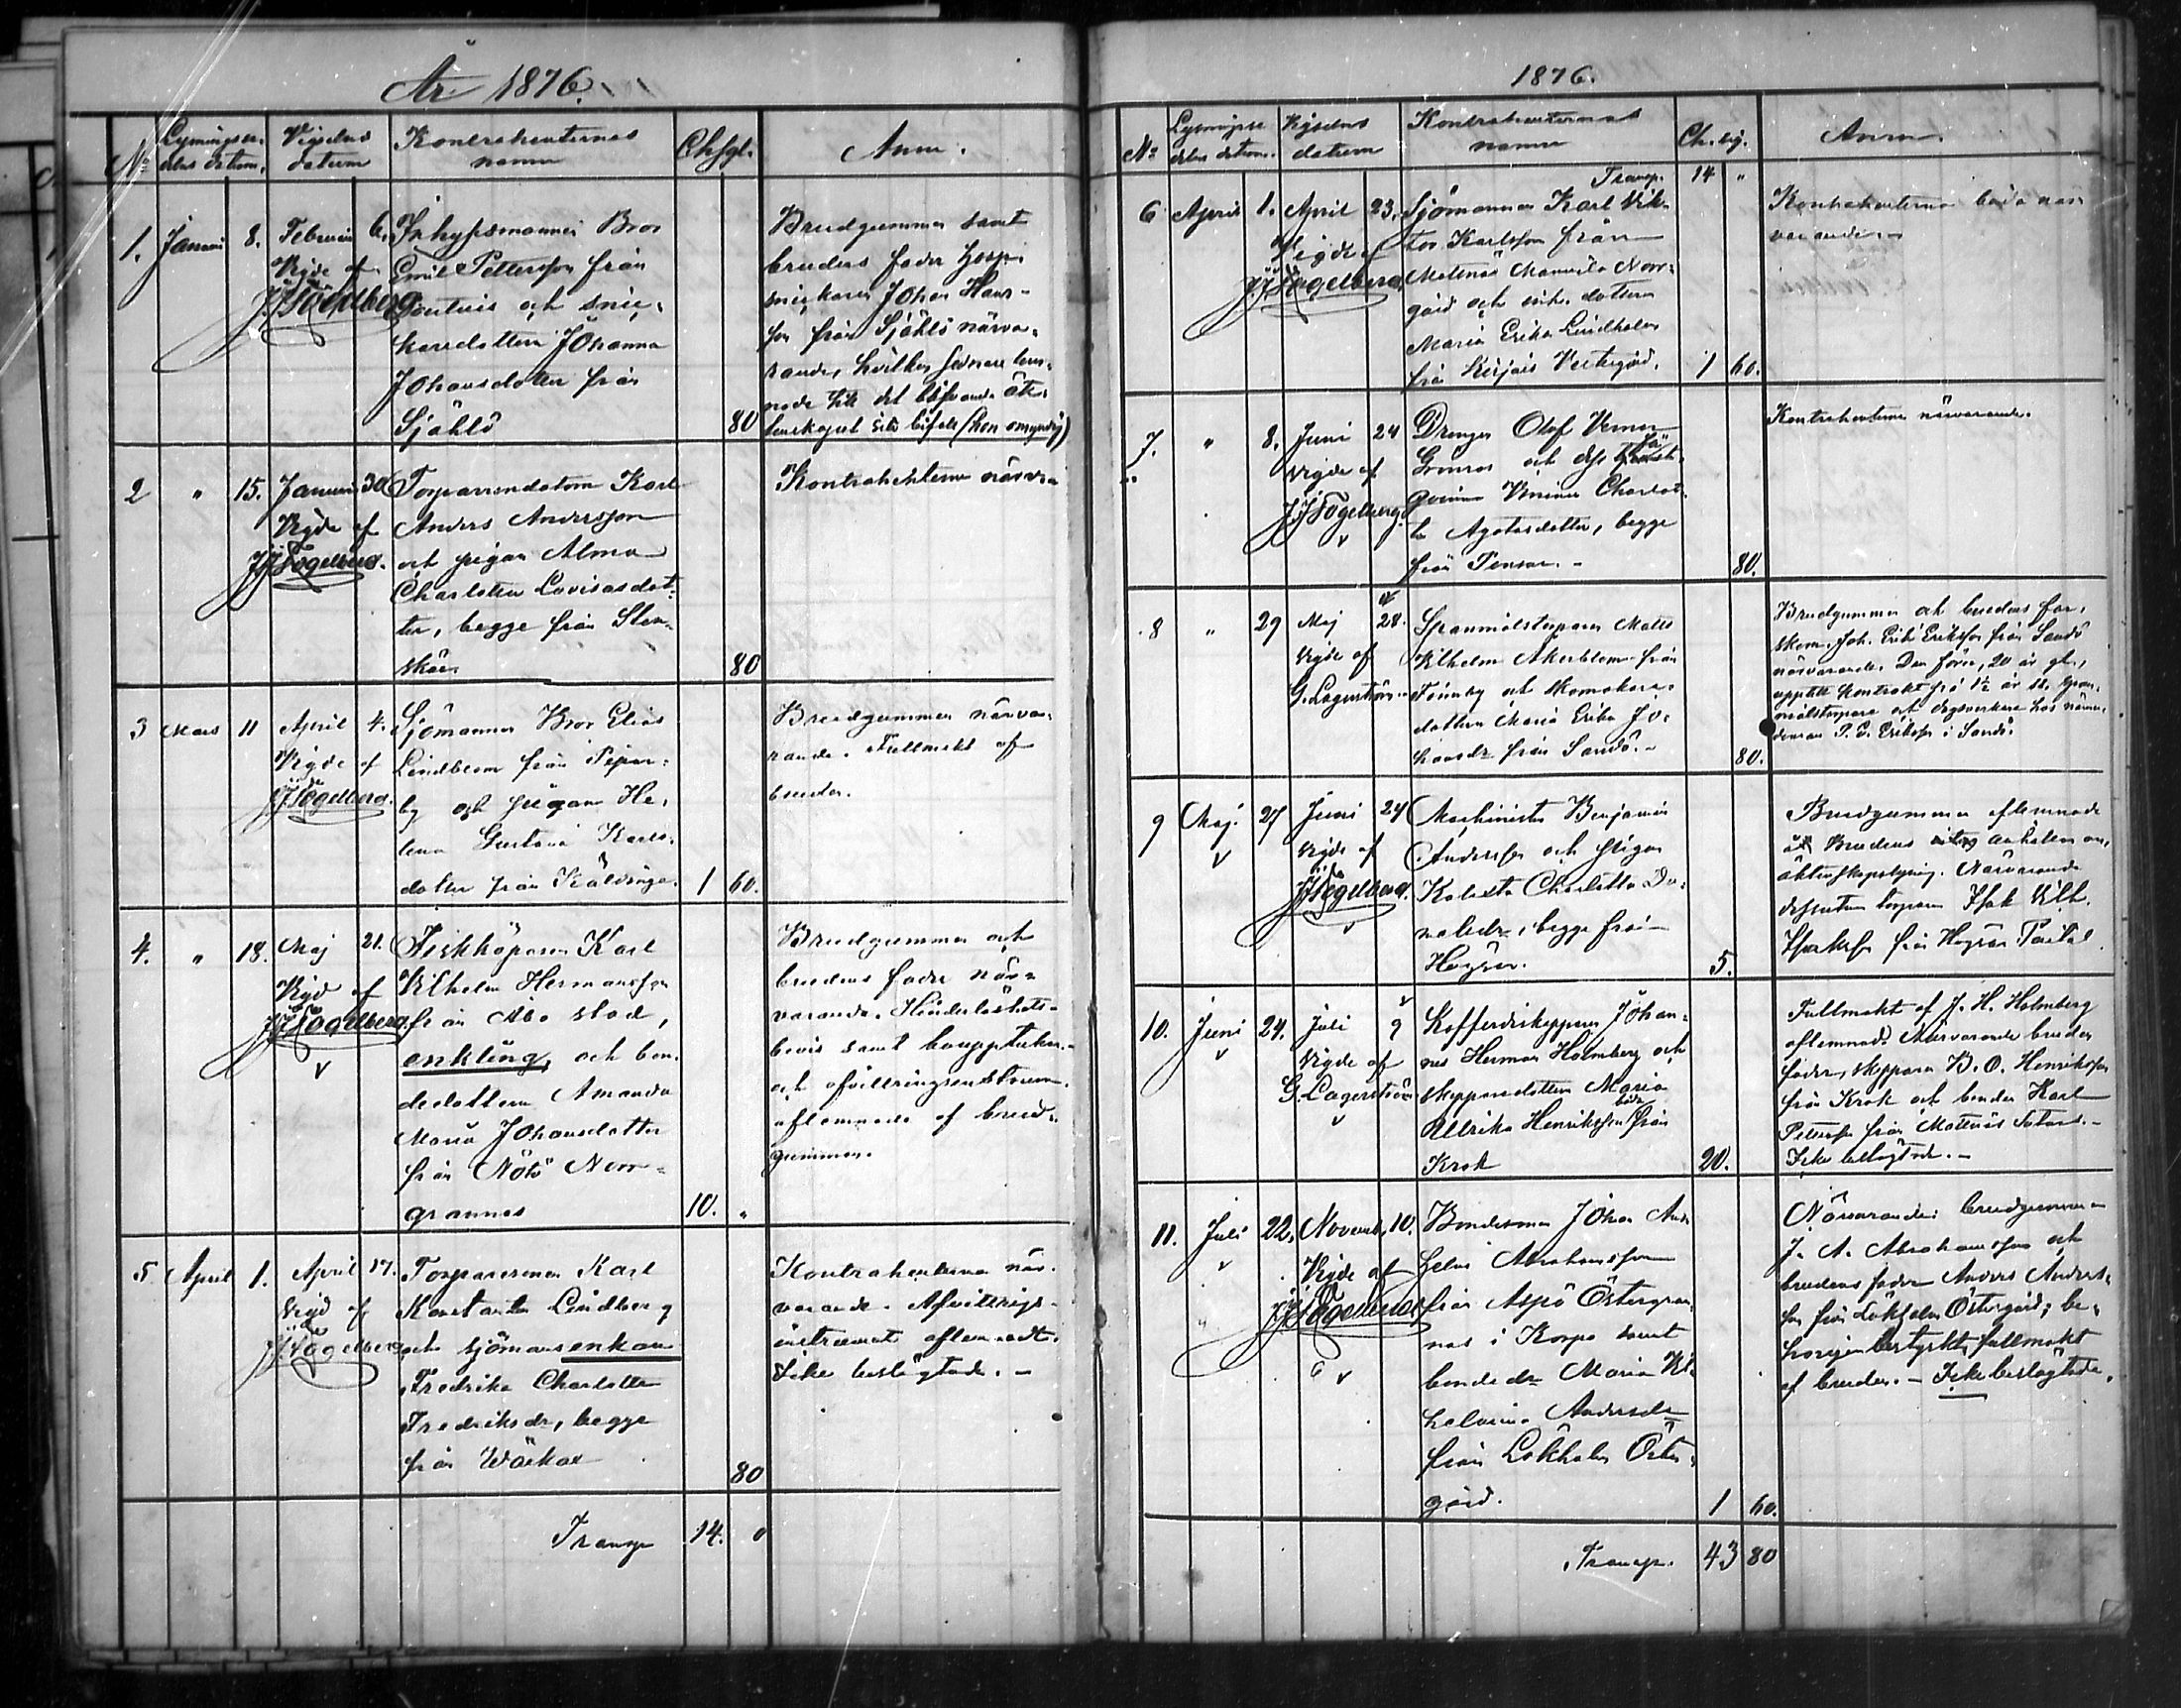 År 1876.
No Lysningsse-
delns datum. Vigselns
datum Kontrahenternas
namn Ch.sgl. Anm.
1. Januari 8. Februari 6.
Vigde af
JJFogelberg
Inhysesmannen Bror
Emil Pettersson från
och snic-
karedottern Johanna
Johansdotter från
Själlö
80
Brudgummen samt
brudens fader
snickaren Johan Hans-
son från Själlö närva-
rande, hvilken sednare lem-
nade till det blifvande äk-
tenskapet sitt bifall (hon omyndig)
2 " 15. Januari 30
Vigde af
JJFogelberg.
Torparesonen Karl
Anders Andersson
och pigan Alma
Charlotta Lovisasdot-
ter, begge från Sten-
skär.
80
Kontrahenterna närva-
3 Mars 11 April 4.
Vigde af
JJFogelberg.
Sjömannen Bror Elias
Lindblom från Pepar-
by och pigan He-
lena Gustava Karls-
dotter från Kåldinge.
1 60.
Brudgummen närva-
rande. Fullmakt af
bruden.
4. " 18. Maj 21.
Vigd af
JJFogelberg.
v
Fiskköparen Karl
Vilhelm Hermansson
från Åbo stad,
enkling, och bon-
dedottern Amanda
Maria Johansdotter
från Nötö Norr-
grannas
10. "
Brudgummen och
brudens fader när-
varande. Hinderlöshets-
bevis samt bouppteckn.-
och afvittringsinstrum.
aflemnade af brud-
gummen.
5 April 1. April 17.
Vigd af
JJFogelberg
Torparesonen Karl
Konstantin Lindberg
och sjömansenkan
Fredrika Charlotta
Fredriksdr, begge
från Wärkar
80
Kontrahenterna när-
varande. Afvittrings-
instrument aflemnadt.
Icke beslägtade. -
Transp 14. 0
1876.
No Lysningsse
delns datum. Vigselns
datum Kontrahenternas
namn Ch. sig. Anm.
Transp. 14 "
6 April 1. April 23.
Vigde af
JJFogelberg
Sjömannen Karl Vik-
tor Karlsson från
Mattnäs Norr-
gård och inh. dottern
Maria Erika Lindholm
från Kirjais Vestergård.
1 60.
Kontrahenterna båda när-
varande.
7. " 8. Juni 24
Vigde af
JJFogelberg.
v
Drengen Olof Verner
Grönros och
qvinna Charlot-
ta Agatasdotter, begge
från Pensar. -
80.
Kontrahenterna närvarande.
8 " 29 Maj 28.
Vigde af
G. Lagerström.
Spannmålstorparen Matts
Vilhelm Åkerblom från
Finnby och skomakare-
dottern Maria Erika Jo-
hansdr från Sandö. -
80.
Brudgummen och brudens far,
skom. Joh. Erik Eriksson från Sandö
närvarande. Den förra, 20 år gl.,
kontrakt på 1½ år ss. span-
målstorpare och dagsverkare hos nämn-
deman P. E. Eriksson i Sandö.
9 Maj. 27 Juni 24
v
Vigde af
JJFogelberg.
v
Machinisten Benjamin
Andersson och pigan
Kalista Charlotta Da-
nielsdr, begge från
Högsar.
5.
Brudgummen aflemnade
Brudens anhållan om
äktenskapslysning. Närvarande
dessutom torparen Isak Vilh.
Isaksson från Högsar
10. Juni 24. Juli 9
v
Vigde af
G. Lagerström
v
Kofferdiskepparen Johan-
nes Herman Holmberg och
skepparedottern Maria
Ulrika Henriksson båda från
Krok
20.
Fullmakt af J. H. Holmberg
aflemnad. Närvarande brudens
fader, skepparen B. O. Henriksson
från Krok och bonden Karl
Pettersson från Mattnäs
Icke beslägtade. -
11. Juli 22. Novemb. 10.
v
Vigde af
JJFogelberg
v
Bondesonen Johan Au-
gust Abrahamsson
från Aspö Östergran-
nas i Korpo samt
bondedr Maria Vil-
helmina Andersdr
från Lökholm Öster-
gård.
1 60.
Närvarande: brudgummen
J. A. Abrahamsson och
brudens fader Anders Anders-
son från Lökholm Östergård; be-
hörigen bestyrkt fullmakt
af bruden. - Icke beslägtade.
Transp. 43 80